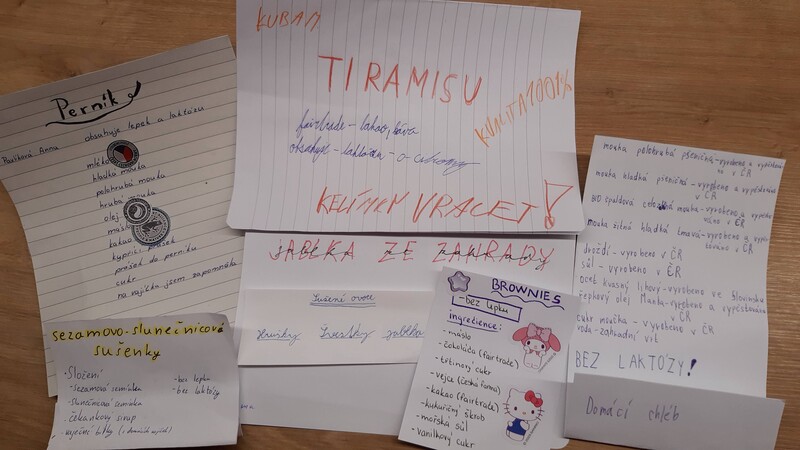 Perník
Roušková Anna obsahuje lepek a laktózu
mléko
hladká mouka
polohrubá mouka
hrubá mouka
olej
kakao
kypřící prášek
prášek do perníku
cukr
na vajíčka jsem zapomněla
KUBA
TIRAMISU
KVALITA 1001%
fairtrade - kakao, káva
obsahuje - laktóza
KELÍMKY VRACET!
JABLKA ZE ZAHRADY
Sušené ovoce
Hrušky Švestky jablka
BROWNIES
-bez lepku
ingredience:
- máslo
- čokoláda (fairtrade)
- třtinový cukr
- vejce (česká farma)
- kakao (fairtrade)
- kukuřičný škrob
- mořská sůl
- vanilkový cukr
sezamovo-slunečnicové
sušenky
• Složení
- sezamová semínka
- slunečnicová semínka
• čekankový sirup
• vaječné bílky
- bez lepku
- bez laktózy
mouka polohrubá pšeničná - vyrobeno a vypěstováno
v ČR
mouka hladká pšeničná - vyrobeno a vypěstováno
v ČR
BIO špaldová celozrnná mouka - vyrobeno a
v ČR
mouka žitná hladká tmavá - vyrobeno a
v ČR
droždí - vyrobeno v ČR
sůl - vyrobeno v ČR
ocet kvasný lihový - vyrobeno ve Slovinsku
řepkový olej Manka - vyrobeno a vypěstováno
v ČR
cukr moučka - vyrobeno v ČR
voda - zahradní vrt
BEZ LAKTÓZY!
Domácí chléb